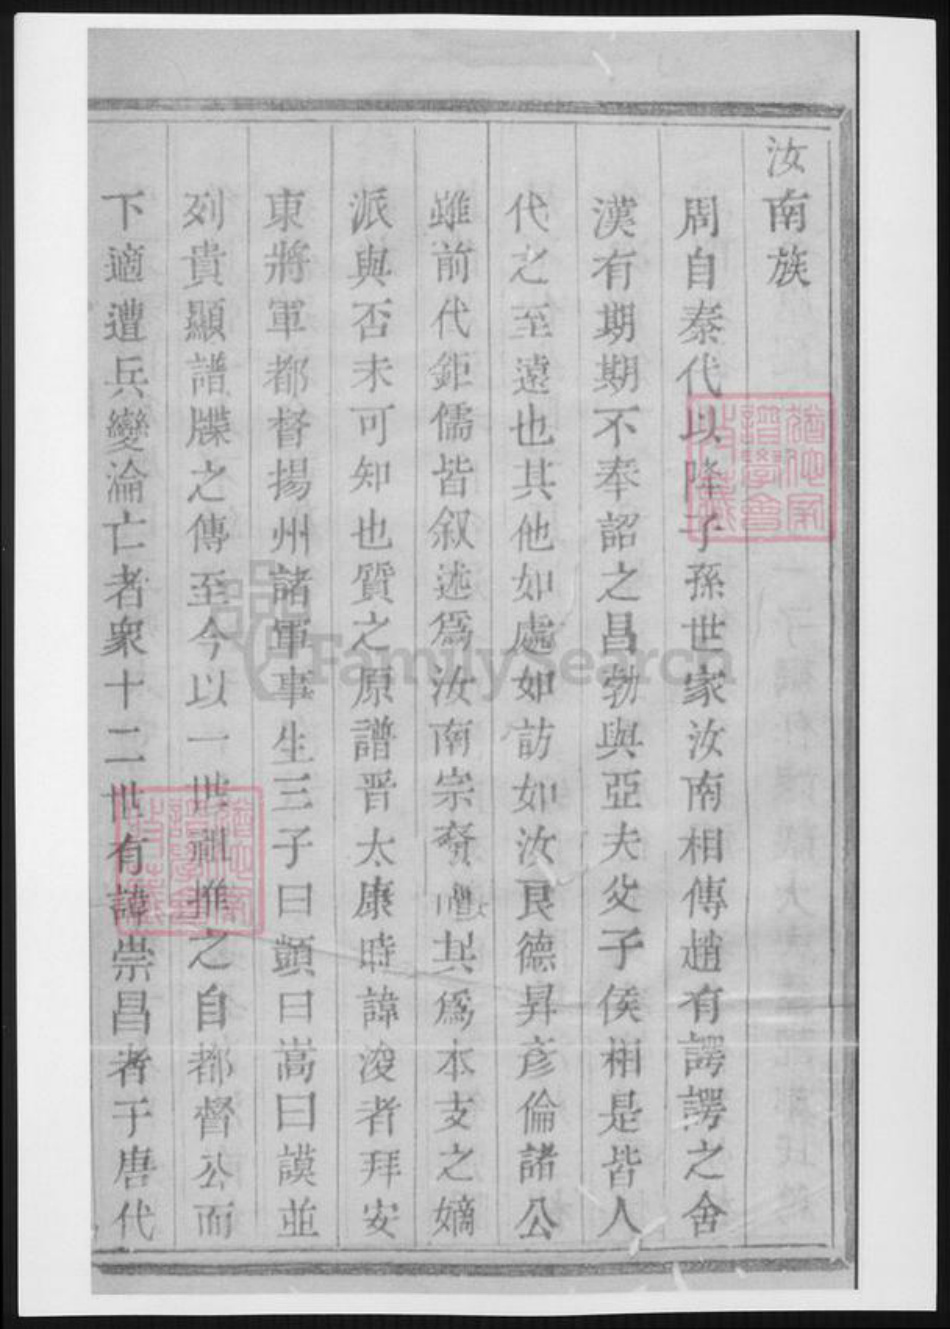 汝南族
周自秦代以降子孫世家汝南相傳趙有諤諤之舍
漢有期期不奉詔之昌勃與亞夫父子侯相是皆人
代之至遠也其他如處如訪如汝良德昇彥倫諸公
雖前代鉅儒皆叙述爲汝南宗賢 其爲本支之嫡
派與否未可知也質之原譜晋太康時諱浚者拜安
東將軍都督揚州諸軍事生三子曰顗曰嵩曰謨並
列貴顯譜牒之傳至今以一世祖推之自都督公而
下適遭兵變淪亡者衆十二世有諱崇昌者于唐代
FamilySearch